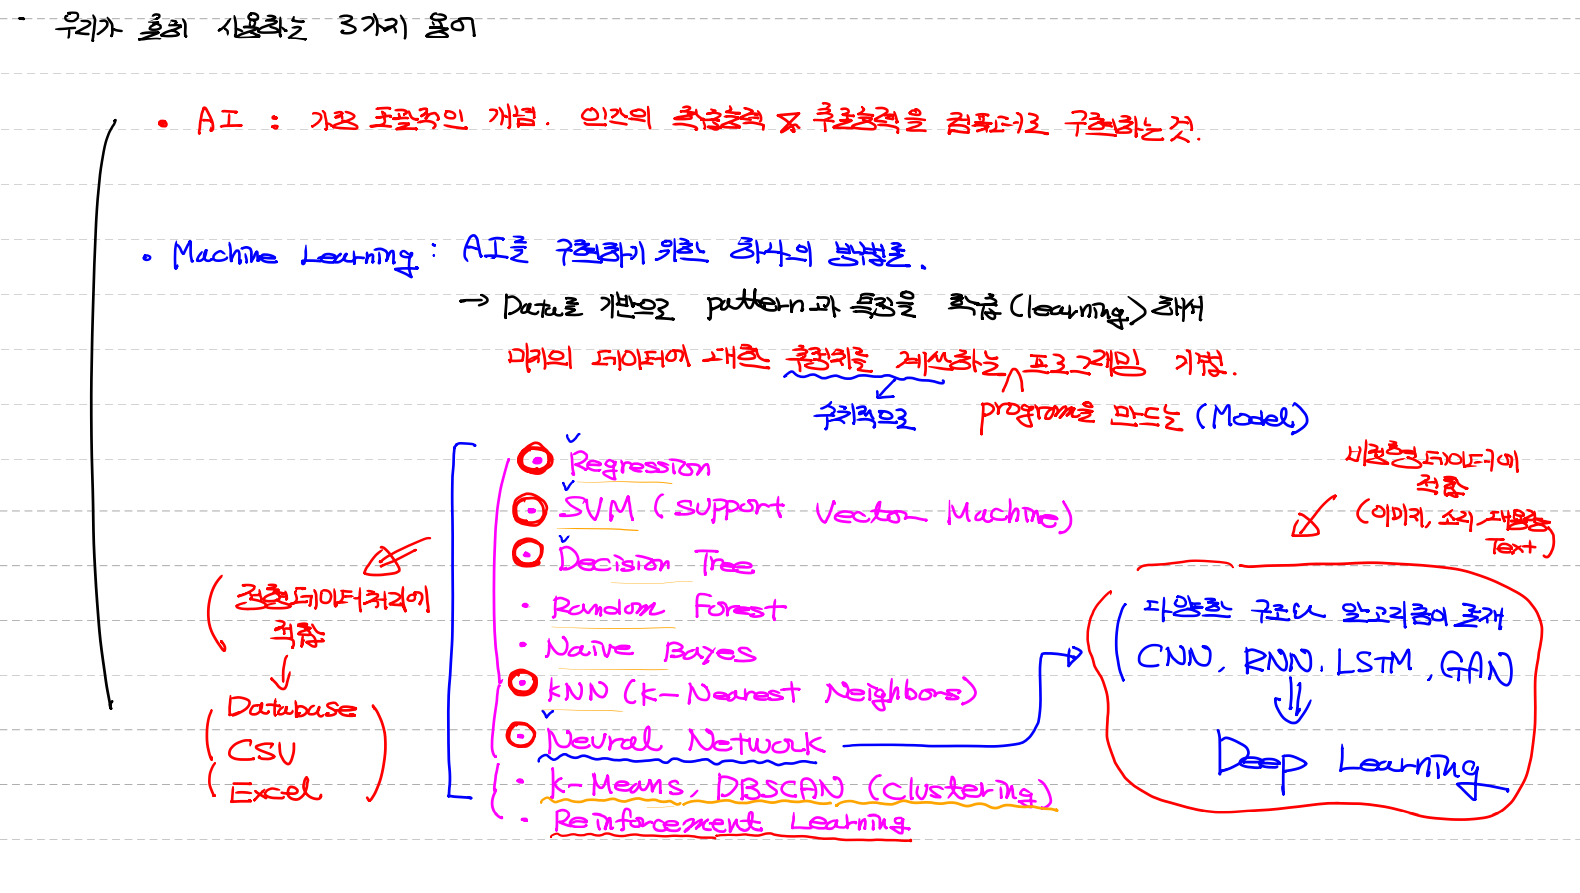 우리가 흔히 사용하는 3가지 용어
• AI : 가장 포괄적인 개념. 인간의 학습능력 및 추론능력을 컴퓨터로 구현하는 것.
• Machine Learning : AI를 구현하기 위한 하나의 방법론.
→ Data를 기반으로 pattern과 특징을 학습 (learning) 해서
미지의 데이터에 대한 추정치를 계산하는 프로그래밍 기법.
수치적으로
program을 만드는 (Model)
• Regression
• SVM (Support Vector Machine)
• Decision Tree
• Random Forest
• Naive Bayes
• KNN (K-Nearest Neighbors)
• Neural Network
• K-Means, DBSCAN (Clustering)
• Reinforcement Learning
정형데이터처리에
적합
Database
CSV
Excel
비정형데이터에
적합
(이미지, 소리, 대용량
Text)
다양한 구조나 알고리즘이 존재
CNN, RNN, LSTM, GAN
Deep Learning